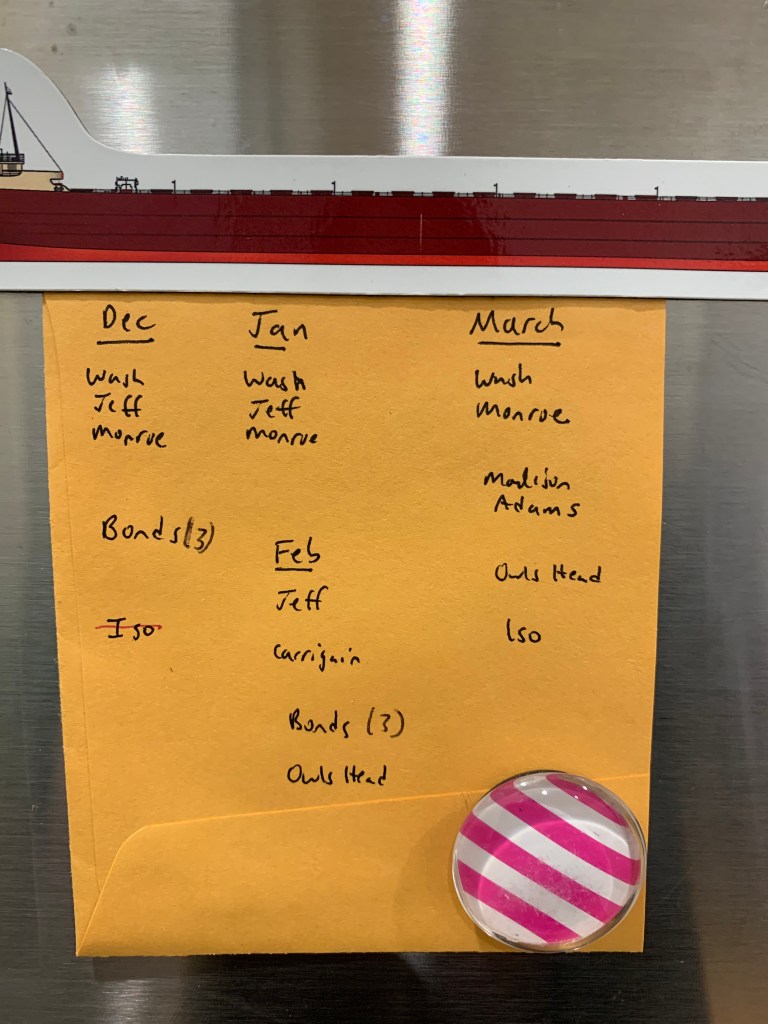 Dec
Wash
Jeff
Monroe
Bonds (3)
Iso
Jan
Wash
Jeff
Monroe
Feb
Jeff
Carrigain
Bonds (3)
Owls Head
March
Wash
Monroe
Madison
Adams
Owls Head
Iso